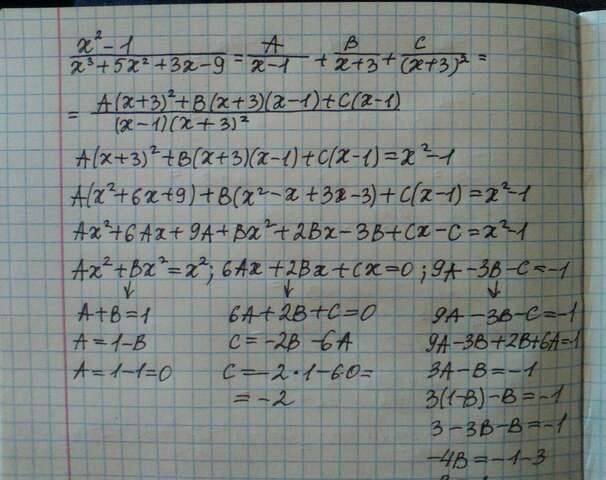 x² - 1 / x³ + 5x² + 3x - 9 = A / x - 1 + B / x + 3 + C / (x + 3)² =
= A(x + 3)² + B(x + 3)(x - 1) + C(x - 1) / (x - 1)(x + 3)²
A(x + 3)² + B(x + 3)(x - 1) + C(x - 1) = x² - 1
A(x² + 6x + 9) + B(x² - x + 3x - 3) + C(x - 1) = x² - 1
Ax² + 6Ax + 9A + Bx² + 2Bx - 3B + Cx - C = x² - 1
Ax² + Bx² = x²; 6Ax + 2Bx + Cx = 0; 9A - 3B - C = -1
↓ ↓ ↓
A + B = 1 6A + 2B + C = 0 9A - 3B - C = -1
A = 1 - B C = -2B - 6A 9A - 3B + 2B + 6A = -1
A = 1 - 1 = 0 C = -2 · 1 - 6·0 = 3A - B = -1
= -2 3(1 - B) - B = -1
3 - 3B - B = -1
-4B = -1 - 3